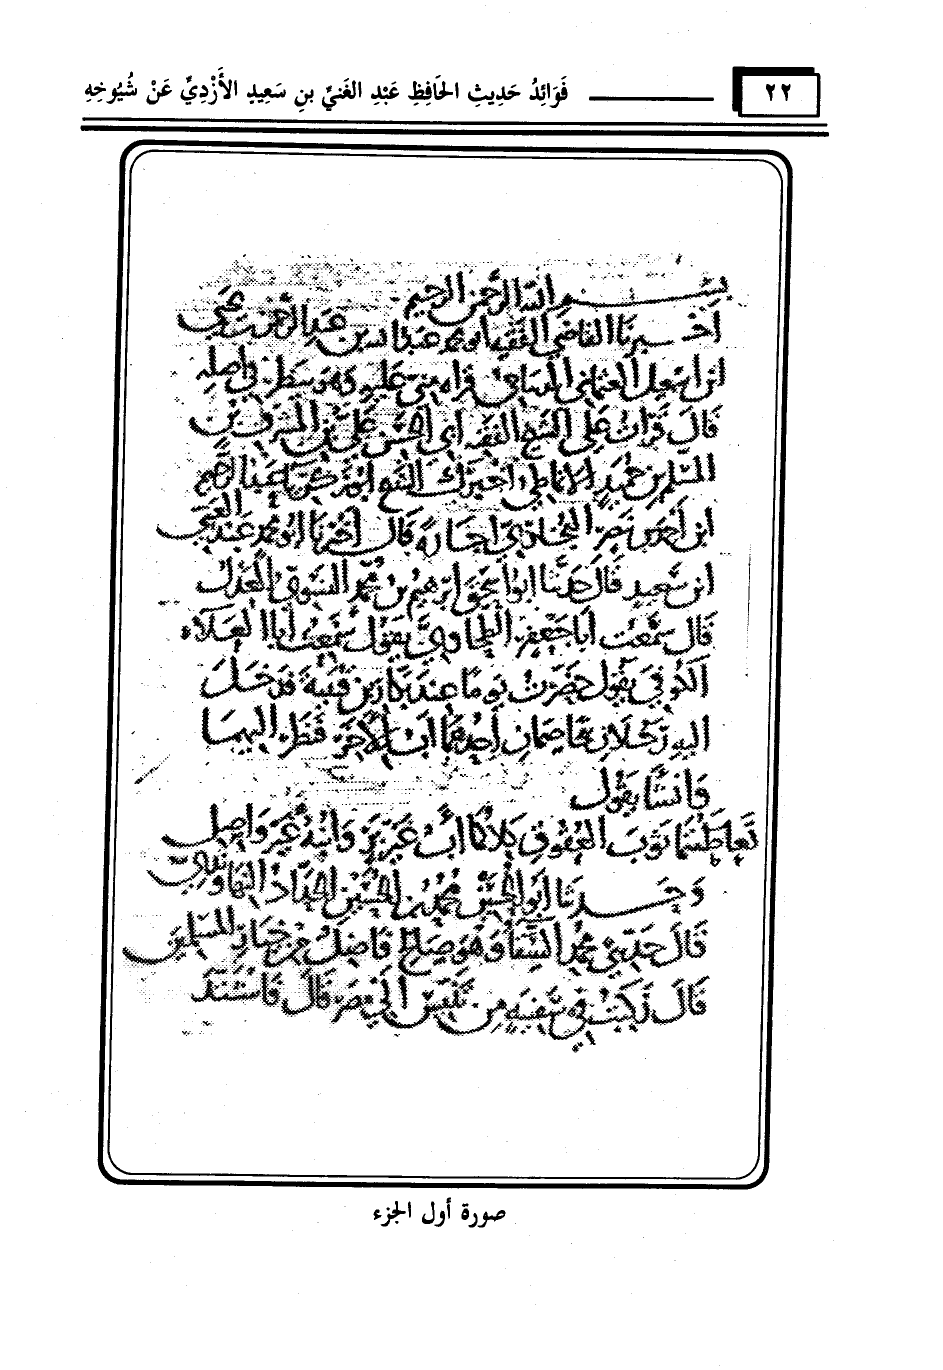 ٢٢
فَوَائِدُ حَدِيثِ الحَافِظِ عَبْدِ الغَنيِّ بنِ سَعِيدٍ الأَزْدِيِّ عَنْ شُيُوخِهِ
بسم الله الرحمن الرحيم
أخبرنا القاضي الفقيه ابو محمد عبد الله بن عبد الرحمن بن يحيى
ابن اسمعيل العثماني الديباجي قراه مني عليه وهو ينظر في اصله
قال قرات على الشيخ الثقه ابي الحسن علي بن المشرف بن
المسلم بن حميد الانماطي اخبرك الشيخ ابو زكريا عبد الرحيم
ابن احمد بن نصر البخاري اجازة قال اخبرنا ابو محمد عبد الغني
ابن سعيد قال حدثنا ابو اسحق ابرهيم بن محمد العدل
قال سمعت ابا جعفر الطحاوي يقول سمعت ابا العلاء
الكوفي يقول حضرت يوما عند بكار بن قتيبة فدخل
اليه رجلان يتخاصمان احدهما اب للآخر فنظر اليهما
وانشا يقول
تعاطيتما ثوب العقوق كلاكما اب غير بر وابنه غير واصل
وحدثنا ابو الحسن محمد بن الحسين الحداد
قال حدثني محمد وهو صالح فاضل من خيار المسلمين
قال ركبت في سفينه من تنيس الى مصر قال فاستند
صورة أول الجزء